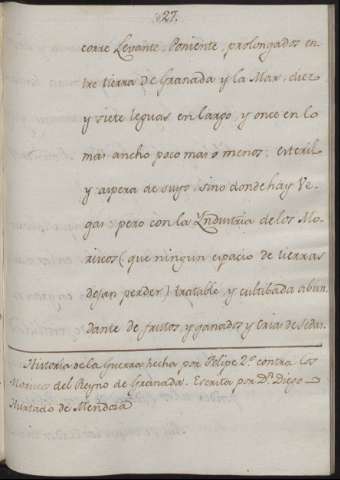 27.
corre Levante, Poniente, prolongados en-
tre tierra de Granada y la Mar, diez
y siete leguas en largo, y once en lo
mas ancho poco mas o menos: esteril
y aspera de suyo, sino donde hay Ve-
gas: pero con la Yndustria de los Mo-
riscos (que ningun espacio de tierras
dejan perder) tratable, y cultibada abun-
dante de frutos y ganados y Crias de Sedas.
Historia de la Guerra hecha por Felipe 2º contra los
Moriscos del Reyno de Granada. Escrita por Dn. Diego
Hurtado de Mendoza